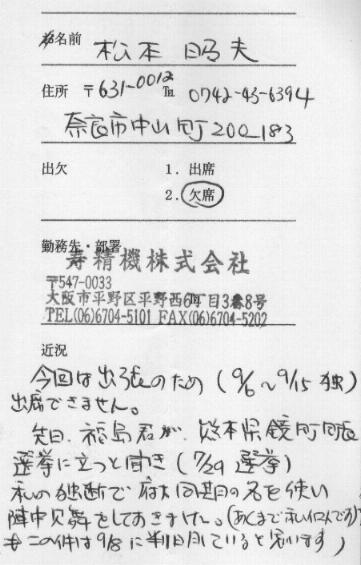 お名前 松本 昭夫
住所 〒631-0012 ℡ 0742-45-6394
奈良市中山町200-183
出欠 1. 出席
2. 欠席
勤務先・部署
寿精機株式会社
〒547-0033
大阪市平野区平野西6丁目3番8号
TEL(06)6704-5101 FAX(06)6704-5202
近況
今回は出張のため(9/6~9/15 独)
出席できません。
先日、福島君が、熊本県鏡町町長
選挙に立つと聞き(7/29 選挙)
私の独断で 同期の名を使い
陣中見舞をしておきました。(あくまで私個人ですが)
この件は9/8に判明していると思います)